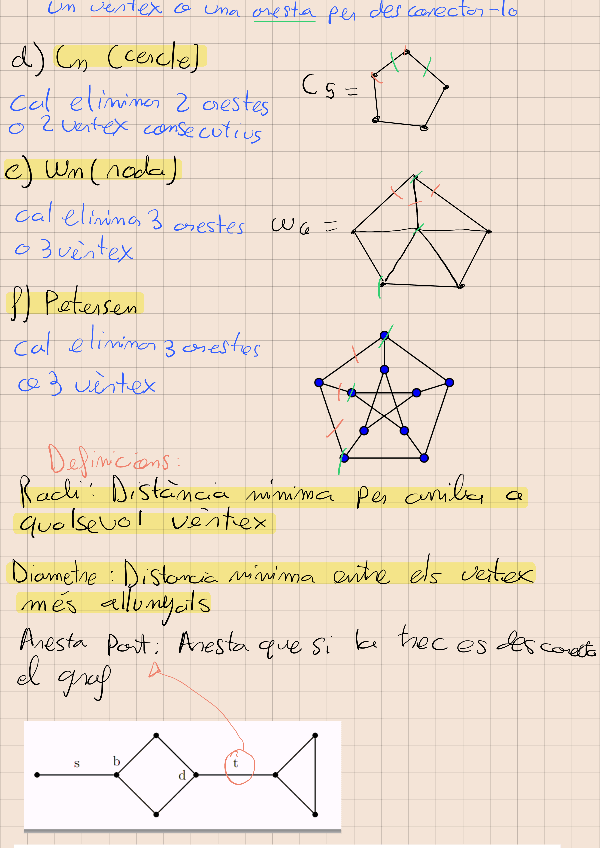 un vertex o una aresta per desconectar-lo
d) Cn (cercle)
C5 =
Cal eliminar 2 arestes
o 2 vertex consecutius
e) Wn (roda)
cal eliminar 3 arestes
o 3 vèrtex
W6 =
f) Petersen
cal eliminar 3 arestes
o 3 vèrtex
Definicions:
Radi: Distància mínima per arribar a
qualsevol vèrtex
Diametre: Distancia minima entre els vertex
més allunyats
Aresta Pont: Aresta que si la trec es desconecta
el graf
s b d t